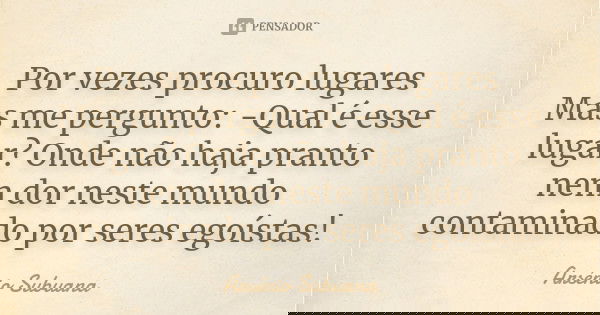 PENSADOR
Por vezes procuro lugares
Mas me pergunto: -Qual é esse
lugar? Onde não haja pranto
nem dor neste mundo
contaminado por seres egoístas!
Arsénio Subuana